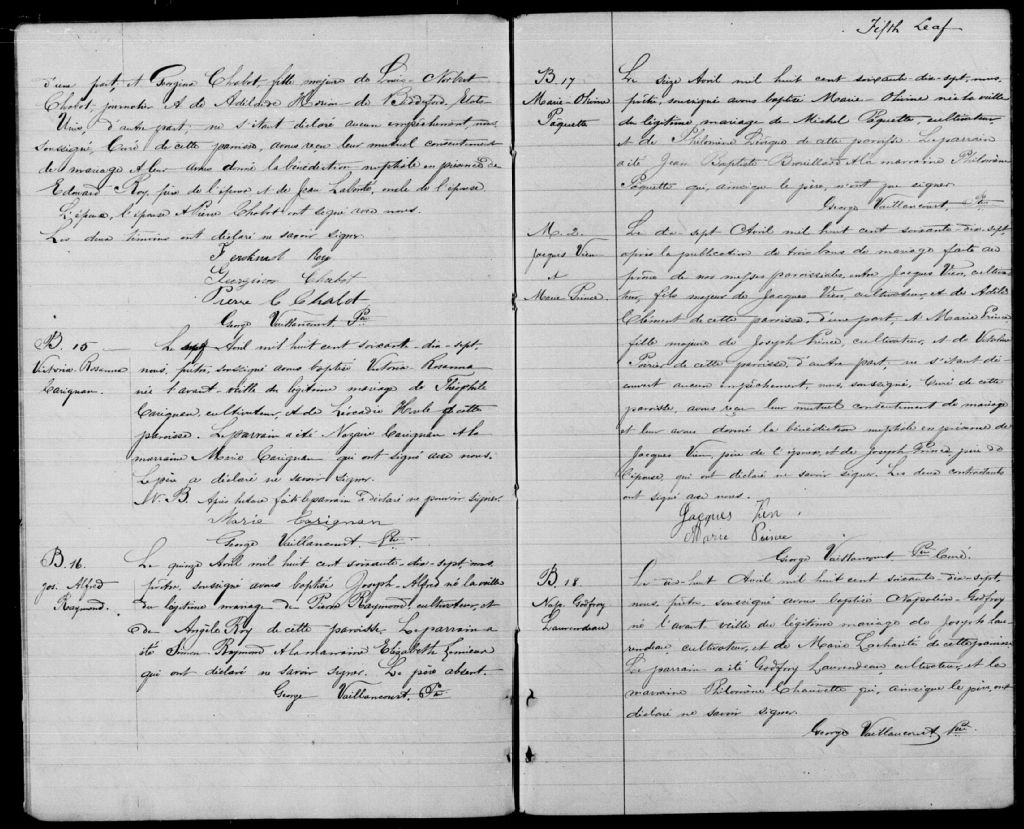 d'une part, et Georgina Chabot, fille majeure de Louis-Norbert
Chabot, journalier et de Adélaide de Biddeford, Etats
Unis, d'autre part, ne s'étant déclaré aucun empêchement, nous
soussigné, Curé de cette paroisse, avons reçu leur mutuel consentement
de mariage et leur avons donné la bénédiction nuptiale en présence de
Edouard Roy, père de l'époux et de Jean Labonté, oncle de l'épouse
L'époux, l'épouse et Pierre Chabot ont signé avec nous.
Les deux témoins ont déclaré ne savoir signer.
Roy
Georgina Chabot
Pierre C Chabot
George Vaillancourt Ptre
B. 15
Victoria Rosanna
Carignan.
Le sept Avril mil huit cent soixante-dix-sept,
nous, prêtre, soussigné avons baptisé Victoria Rosanna
née l'avant-veille du légitime mariage de Théophile
Carignan, cultivateur, et de Léocadie Houle de cette
paroisse. Le parrain a été Nazaire Carignan et la
marraine Marie Carignan qui ont signé avec nous.
Le père a déclaré ne savoir signer.
N.B. Après lecture faite le parrain a déclaré ne pouvoir signer.
Marie Carignan
George Vaillancourt. Ptre
B. 16.
Jos. Alfred
Raymond.
Le quinze Avril mil huit cent soixante-dix-sept, nous
prêtre, soussigné avons baptisé Joseph-Alfred né la veille
du légitime mariage de Pierre Raymond, cultivateur, et
de Angèle Roy de cette paroisse. Le parrain a
été Simon Raymond et la marraine Elizabeth Lemieux
qui ont déclaré ne savoir signer. Le père absent.
George Vaillancourt. Ptre
Fifth Leaf
B 17
Marie-Olivine
Paquette
Le seize Avril mil huit cent soixante dix-sept, nous,
prêtre, soussigné avons baptisé Marie-Olivine née la veille
du légitime mariage de Michel Paquette, cultivateur
et de Philomène de cette paroisse. Le parrain
a été Jean Baptiste Brouillard et la marraine Philomène
Paquette qui, ainsi que le père, n'ont pu signer.
George Vaillancourt, Ptre
M. 2.
Jacques Vien
et
Marie Prince
Le dix-sept Avril mil huit cent soixante-dix-sept
après la publication de trois bans de mariage faite au
prône de nos messes paroissiales, entre Jacques Vien, cultiva-
teur, fils majeur de Jacques Vien, cultivateur, et de Adèle
Clément de cette paroisse, d'une part, et Marie Prince
fille majeure de Joseph Prince, cultivateur, et de Victorine
Poirier de cette paroisse, d'autre part, ne s'étant dé-
couvert aucun empêchement, nous, soussigné, Curé de cette
paroisse, avons reçu leur mutuel consentement de mariage
et leur avons donné la bénédiction nuptiale en présence de
Jacques Vien, père de l'époux, et de Joseph Prince, père de
l'épouse, qui ont déclaré ne savoir signer. Les deux contractants
ont signé avec nous.
Jacques Vien.
Marie Prince
George Vaillancourt Ptre Curé.
B 18.
Nap. Godfroy
Laurendeau
Le dix-huit Avril mil huit cent soixante-dix-sept,
nous, prêtre, soussigné avons baptisé Napoléon-Godfroy
né l'avant veille du légitime mariage de Joseph Lau-
rendeau, cultivateur, et de Marie Lacharité de cette paroisse
Le parrain a été Godfroy Laurendeau cultivateur, et la
marraine Philomène Chauvette qui, ainsi que le père, ont
déclaré ne savoir signer.
George Vaillancourt Ptre.